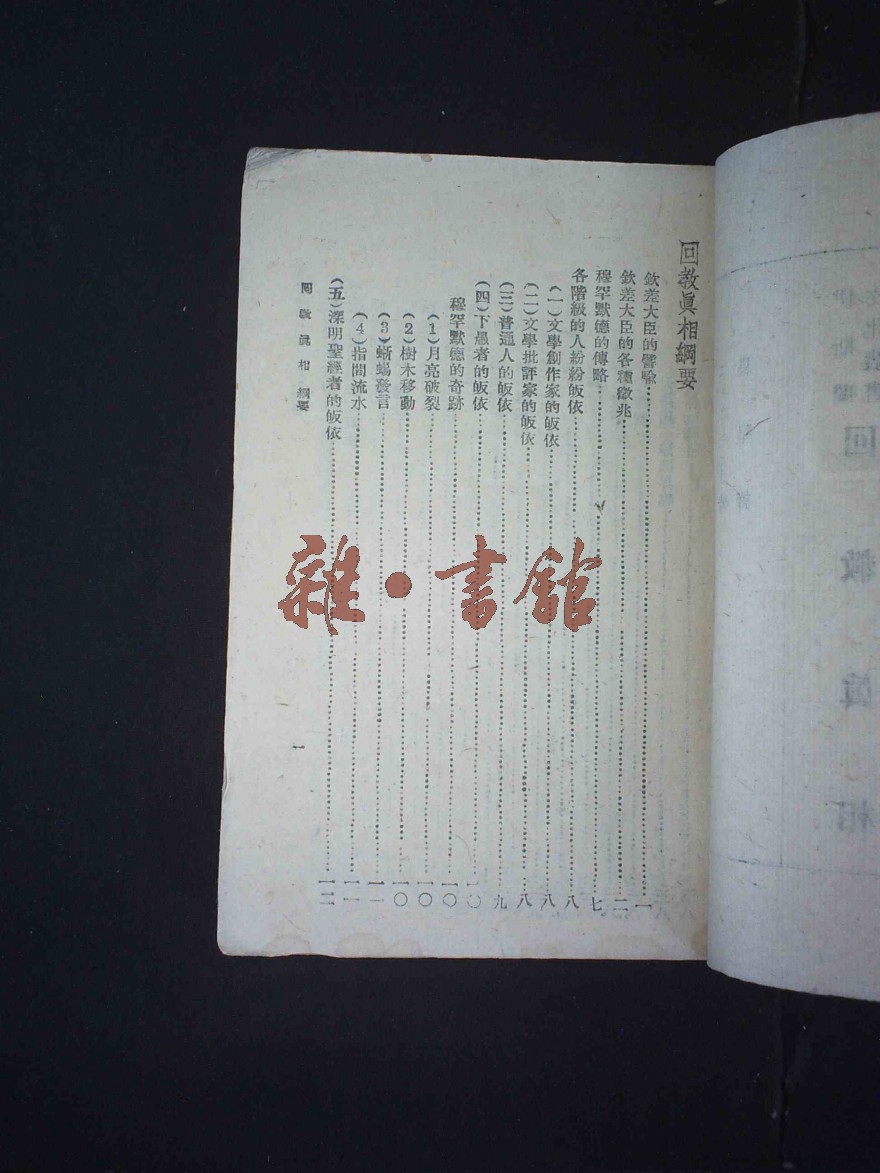 回教眞相綱要
欽差大臣的譬喻………一
欽差大臣的各種徵兆………二
穆罕默德的傳略………七
各階級的人紛紛皈依………八
(一)文學創作家的皈依………八
(二)文學批評家的皈依………八
(三)普通人的皈依………九
(四)下愚者的皈依………一〇
穆罕默德的奇跡………一〇
(1)月亮破裂………一〇
(2)樹木移動………一〇
(3)蜥蜴發言………一一
(4)指間流水………一一
(五)深明聖經者的皈依………一二
回敎眞相 綱要
一
雜·書館
回 敎 眞 相